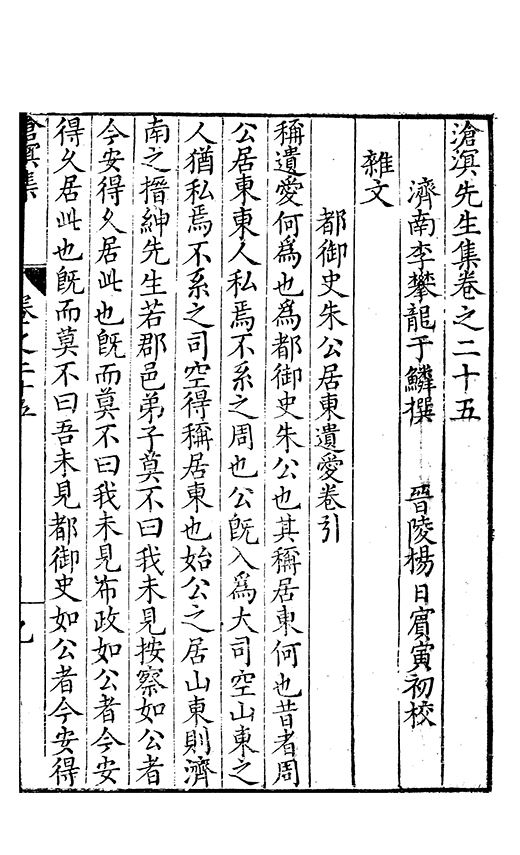 滄溟先生集卷之二十五
濟南李攀龍于鱗撰　晉陵楊日賓寅初校
雜文
都御史朱公居東遺愛卷引
稱遺愛何爲也爲都御史朱公也其稱居東何也昔者周
公居東東人私焉不系之周也公旣入爲大司空山東之
人猶私焉不系之司空得稱居東也始公之居山東則濟
南之搢紳先生若郡邑弟子莫不曰我未見按察如公者
今安得久居此也旣而莫不曰我未見布政如公者今安
得久居此也旣而莫不曰吾未見都御史如公者今安得
滄溟集
卷之二十五